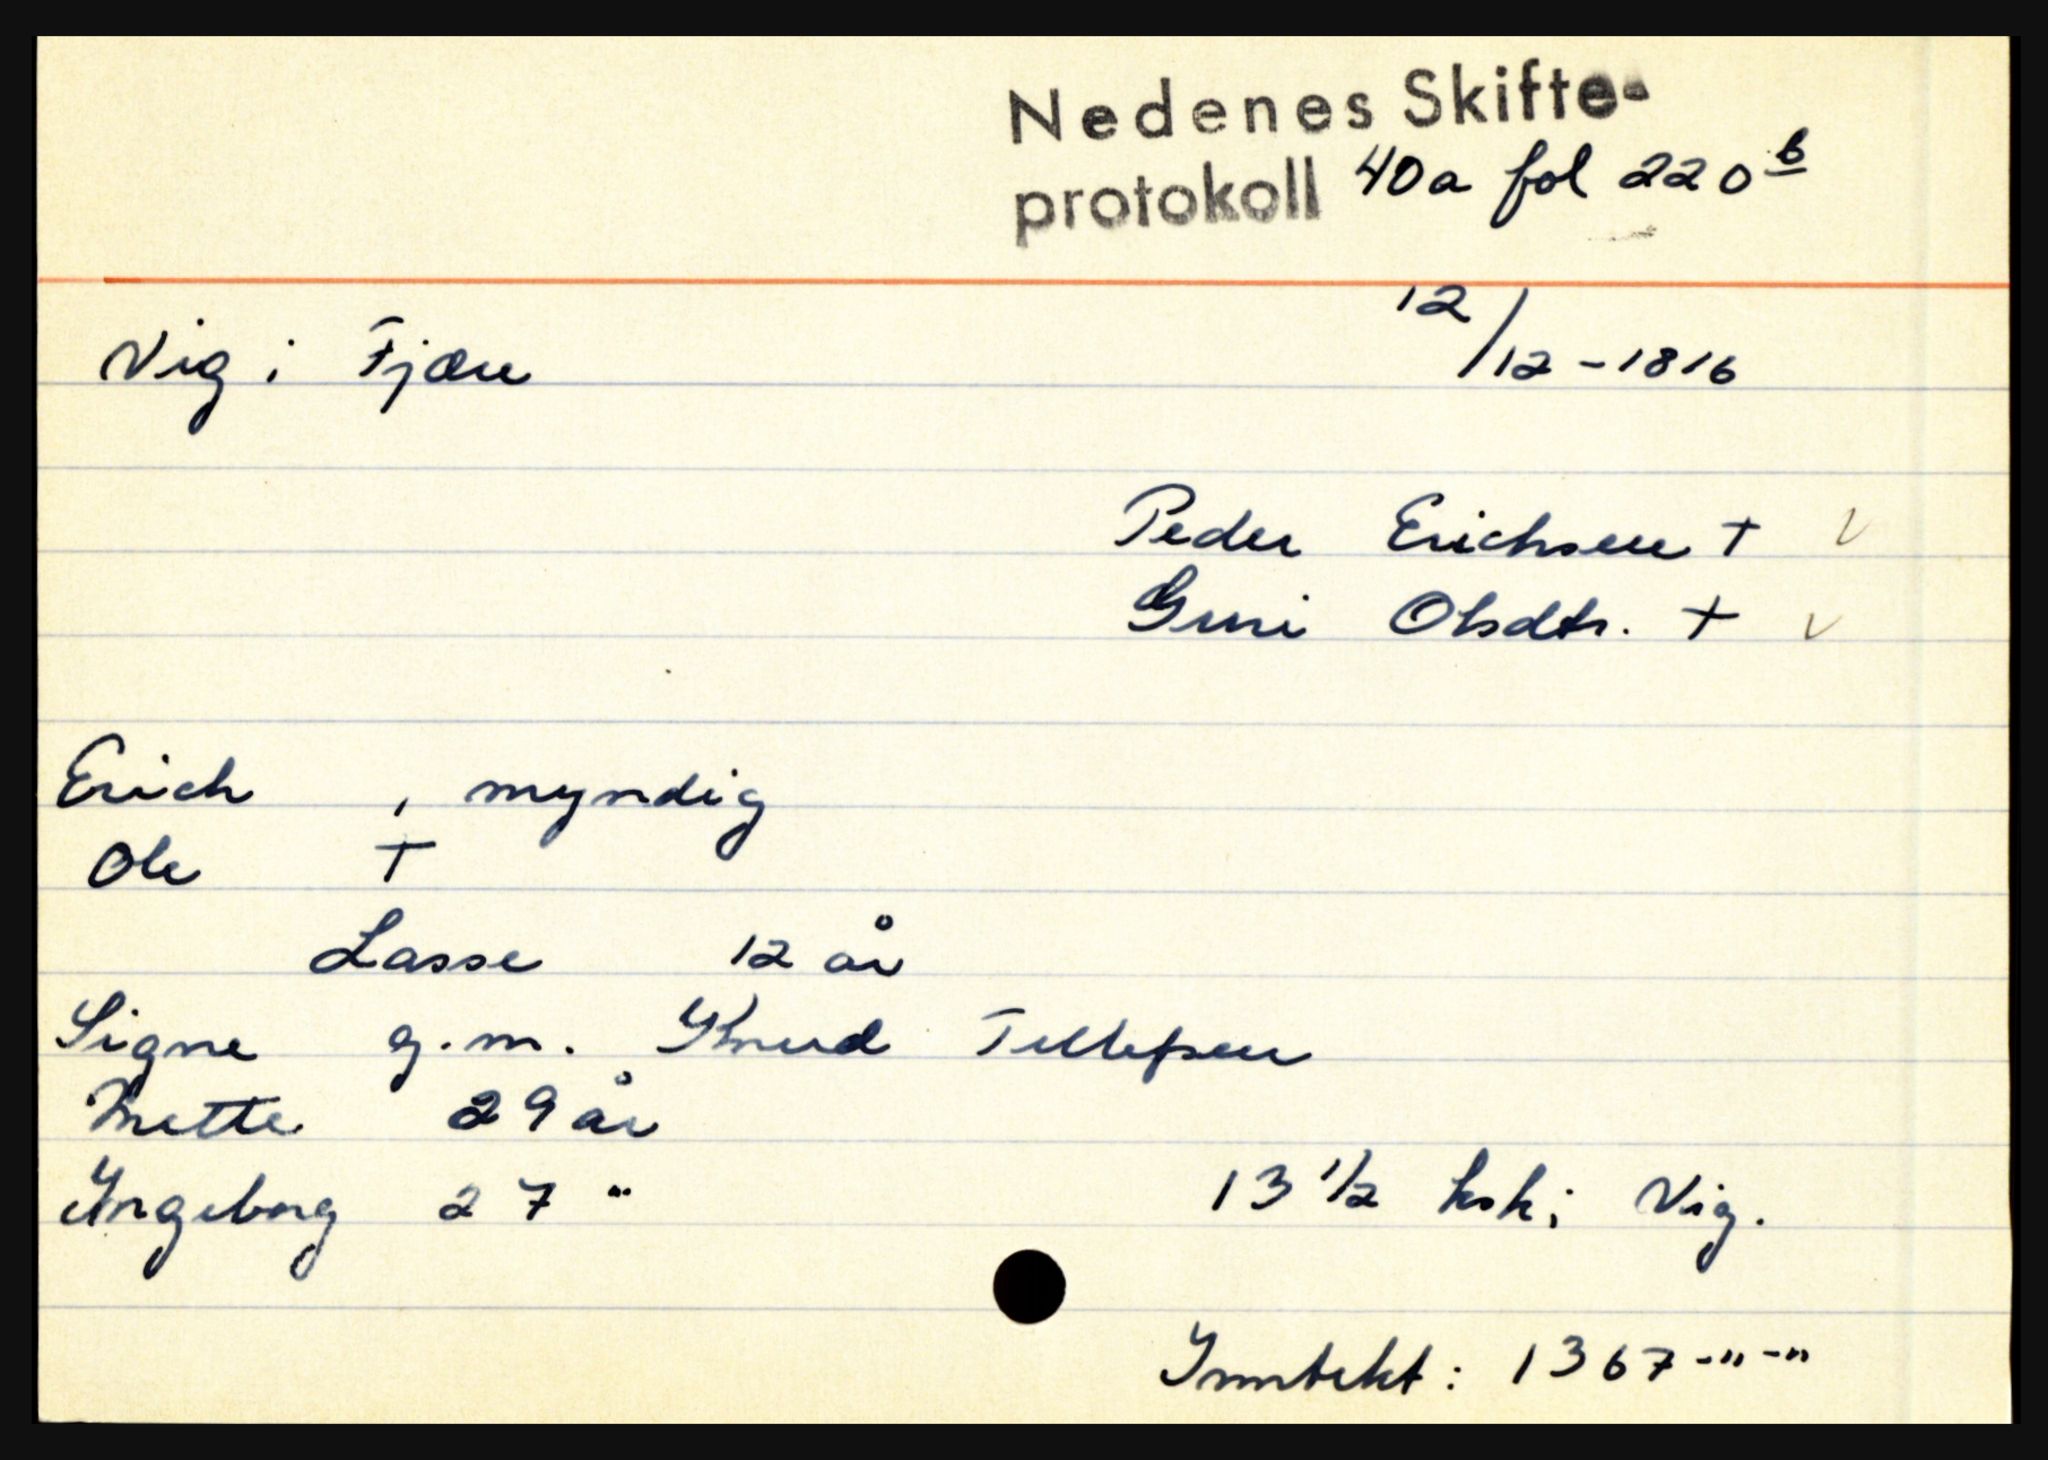 Nedenes Skifte-
protokoll 40a fol 220b
12/12-1816
Vig i Fjære
Peder Erichsen + v
Guni Olsdtr. + v
Erich , myndig
Ole +
Lasse 12 år
Signe g.m. Knud Tellefsen
Mette 29 år
Ingeborg 27 "
13 1/2 ksk i Vig.
Inntekt: 1367-"-"